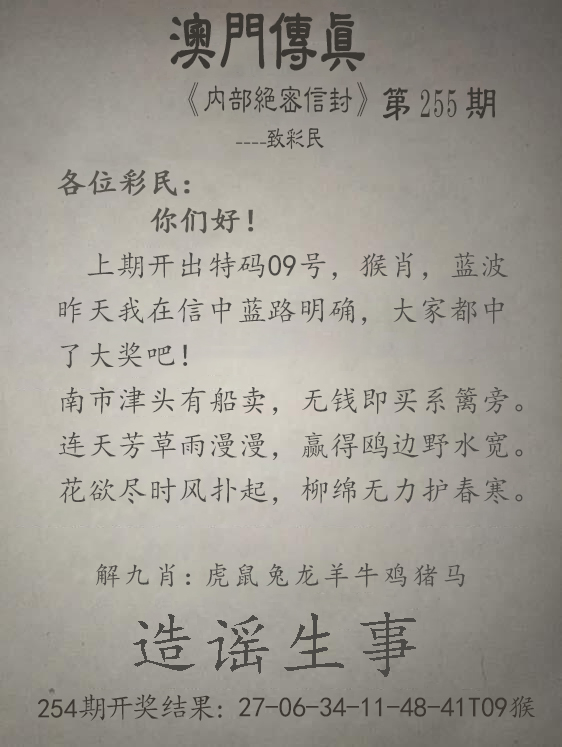 澳門傳真
《内部絕密信封》第255期
----致彩民
各位彩民：
你们好！
上期开出特码09号，猴肖，蓝波
昨天我在信中蓝路明确，大家都中
了大奖吧！
南市津头有船卖，无钱即买系篱旁。
连天芳草雨漫漫，赢得鸥边野水宽。
花欲尽时风扑起，柳绵无力护春寒。
解九肖：虎鼠兔龙羊牛鸡猪马
造谣生事
254期开奖结果：27-06-34-11-48-41T09猴